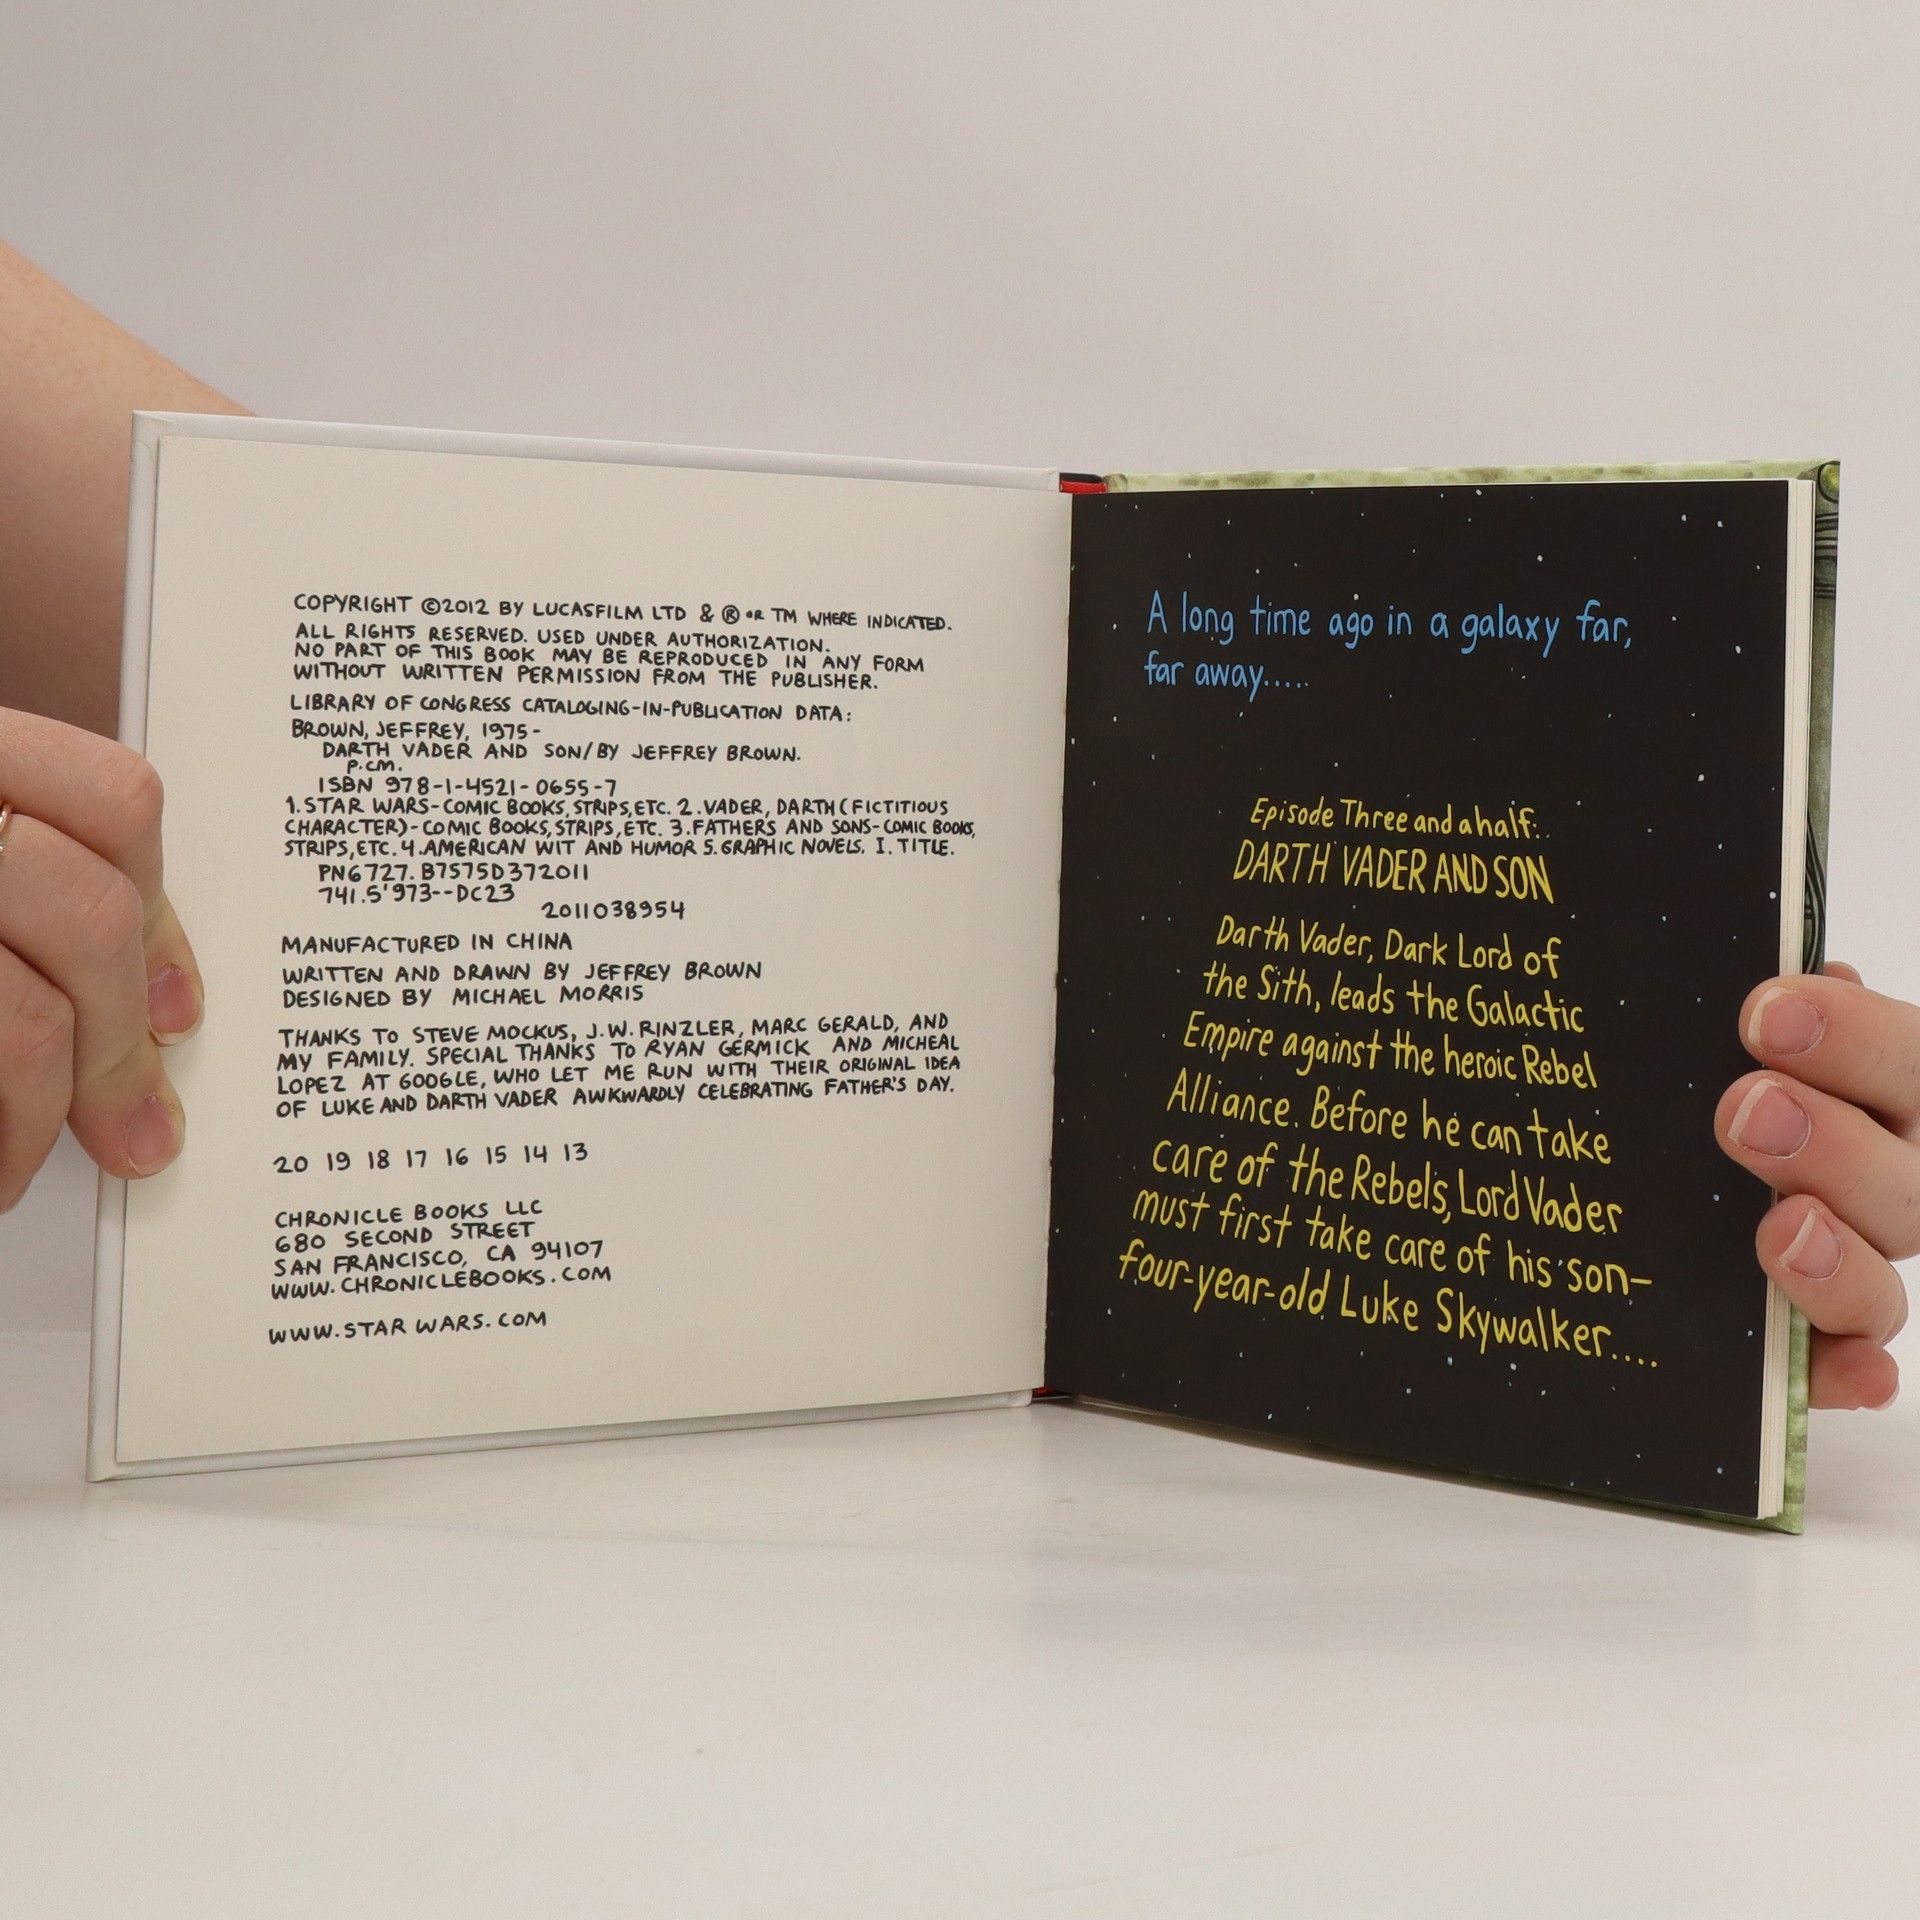 COPYRIGHT ©2012 BY LUCASFILM LTD & ® OR TM WHERE INDICATED.
ALL RIGHTS RESERVED. USED UNDER AUTHORIZATION.
NO PART OF THIS BOOK MAY BE REPRODUCED IN ANY FORM
WITHOUT WRITTEN PERMISSION FROM THE PUBLISHER.
LIBRARY OF CONGRESS CATALOGING-IN-PUBLICATION DATA:
BROWN, JEFFREY, 1975-
DARTH VADER AND SON/BY JEFFREY BROWN.
P.CM.
ISBN 978-1-4521-0655-7
1.STAR WARS-COMIC BOOKS, STRIPS, ETC. 2.VADER, DARTH (FICTITIOUS
CHARACTER)-COMIC BOOKS, STRIPS, ETC. 3.FATHERS AND SONS-COMIC BOOKS,
STRIPS, ETC. 4.AMERICAN WIT AND HUMOR 5.GRAPHIC NOVELS. I. TITLE.
PN6727.B7575D372011
741.5'973--DC23
2011038954
MANUFACTURED IN CHINA
WRITTEN AND DRAWN BY JEFFREY BROWN
DESIGNED BY MICHAEL MORRIS
THANKS TO STEVE MOCKUS, J.W. RINZLER, MARC GERALD, AND
MY FAMILY. SPECIAL THANKS TO RYAN GERMICK AND MICHEAL
LOPEZ AT GOOGLE, WHO LET ME RUN WITH THEIR ORIGINAL IDEA
OF LUKE AND DARTH VADER AWKWARDLY CELEBRATING FATHER'S DAY.
20 19 18 17 16 15 14 13
CHRONICLE BOOKS LLC
680 SECOND STREET
SAN FRANCISCO, CA 94107
WWW.CHRONICLEBOOKS.COM
WWW.STARWARS.COM
A long time ago in a galaxy far,
far away.....
Episode Three and a half:
DARTH VADER AND SON
Darth Vader, Dark Lord of
the Sith, leads the Galactic
Empire against the heroic Rebel
Alliance. Before he can take
care of the Rebels, Lord Vader
must first take care of his son—
four-year-old Luke Skywalker....